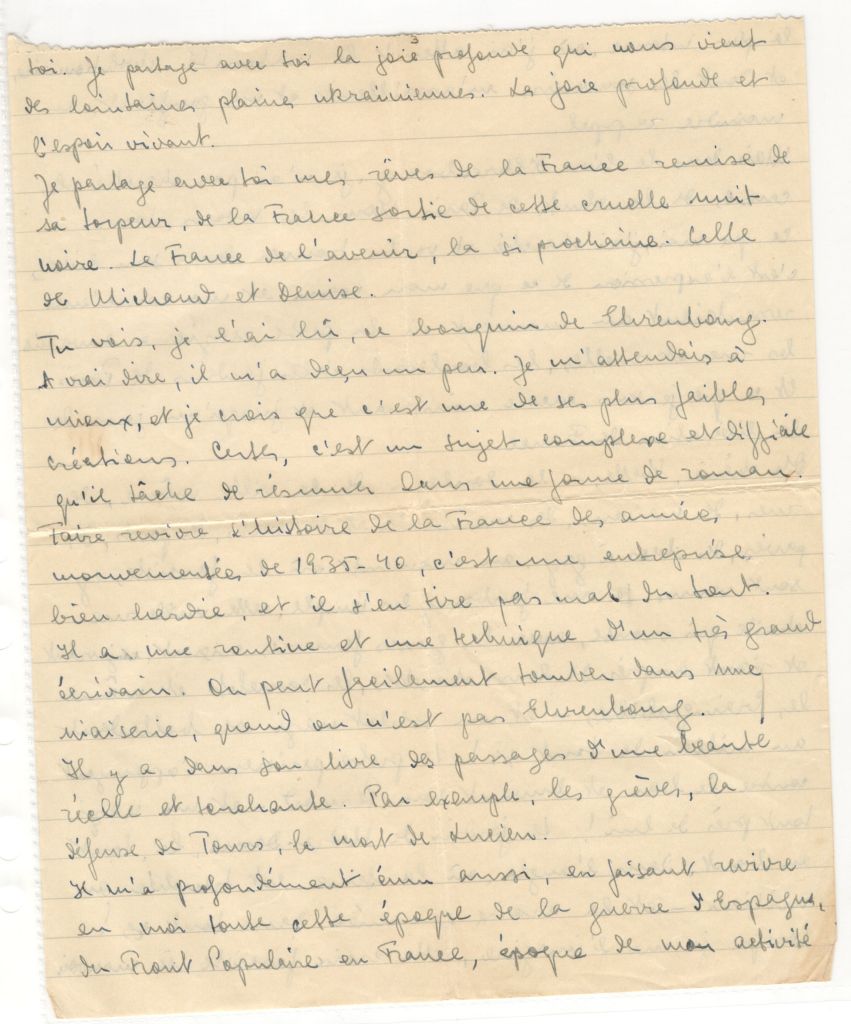 3
toi. Je partage avec toi la joie profonde qui nous vient
des lointaines plaines ukrainiennes. La joie profonde et
l'espoir vivant.
Je partage avec toi mes rêves de la France remise de
sa torpeur, de la France sortie de cette cruelle nuit
noire. La France de l'avenir, la si prochaine. Celle
de Michaud et Denise.
Tu vois, je l'ai lû, ce bouquin de Ehrenbourg.
A vrai dire, il m'a deçu un peu. Je m'attendais à
mieux, et je crois que c'est une de ses plus faibles
créations. Certes, c'est un sujet complexe et difficile
qu'il tâche de résumer dans une forme de roman.
Faire revivre l'histoire de la France des années
mouvementées de 1935-40, c'est une entreprise
bien hardie, et il s'en tire pas mal du tout.
Il a une routine et une technique d'un très grand
écrivain. On peut facilement tomber dans une
niaiserie, quand on n'est pas Ehrenbourg.
Il y a dans son livre des passages d'une beauté
réelle et touchante. Par exemple, les grèves, la
défense de Tours, la mort de Lucien.
Il m'a profondément ému aussi, en faisant revivre
en moi toute cette époque de la guerre d'Espagne,
du Front Populaire en France, époque de mon activité